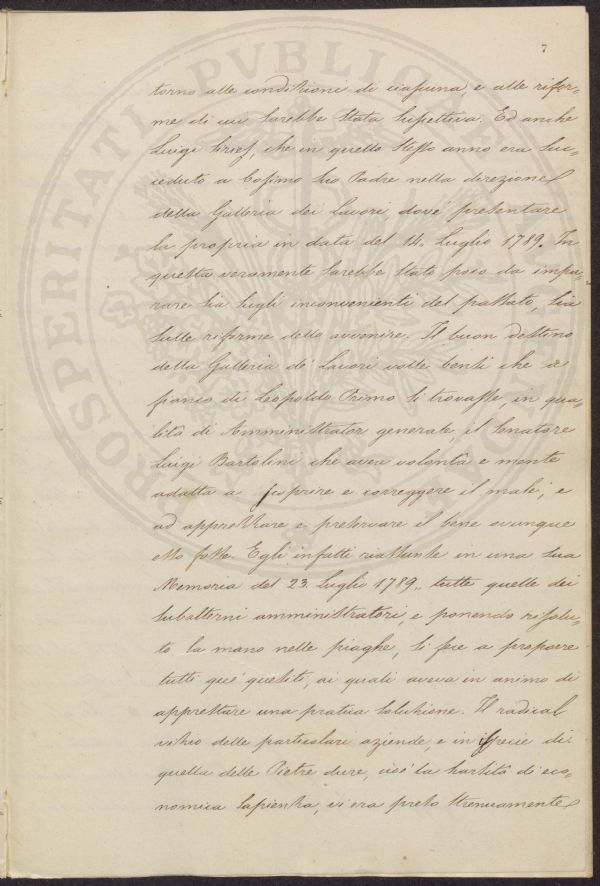 7
torno alle condizioni di ciascuna, e alle rifor-
me di cui sarebbe stata suscettiva. Ed anche
Luigi Siries, che in quello stesso anno era suc-
ceduto a Cosimo suo Padre nella direzione
della Galleria dei Lavori dové presentare
la propria in data del 14. Luglio 1789. In
questa veramente sarebbe stato poco da impa-
rare sia sugli inconvenienti del passato, sia
sulle riforme dello avvenire. Il buon destino
della Galleria de' Lavori volle bensì che a
fianco di Leopoldo Primo si trovasse, in qua-
lità di Amministrator generale, il Senatore
Luigi Bartolini che avea volontà e mente
adatta a scuprire e correggere il male, e
ad apprestare e preservare il bene ovunque
esso fosse. Egli infatti riassunse in una sua
Memoria del 23. Luglio 1789., tutte quelle dei
subalterni amministratori, e ponendo risolu-
to la mano nelle piaghe, si fece a proporre
tutti que' quesiti, ai quali aveva in animo di
apprestare una pratica soluzione. Il radical
vizio delle particolari aziende, e in specie di
quella delle Pietre dure, cioè la scarsità di eco-
nomica sapienza, vi era preso strenuamente
PROSPERITATI PVBLICAE